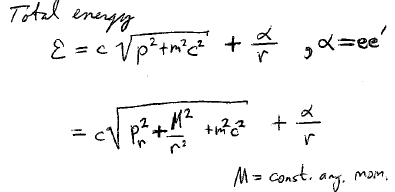 Total energy
ℰ = c √(p² + m²c²) + α/r , α = ee′
= c √(pᵣ² + M²/r² + m²c²) + α/r
M = const. ang. mom.